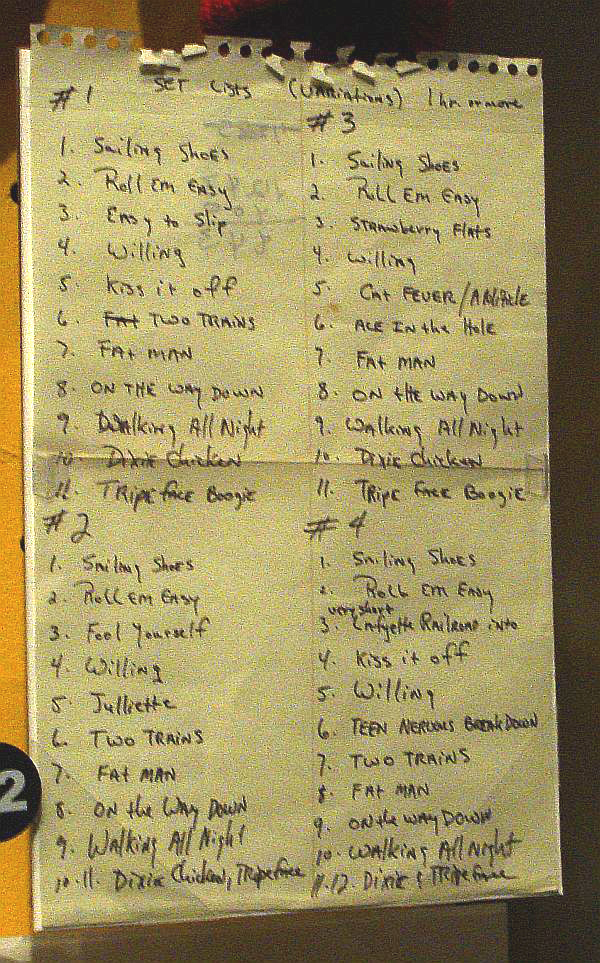 SET Lists (VARIATIONS) 1 hr. or more
#1
1. Sailing Shoes
2. Roll Em Easy
3. Easy to Slip
4. Willing
5. Kiss it off
6. Fat TWO TRAINS
7. FAT MAN
8. ON THE WAY DOWN
9. Walking All Night
10. Dixie Chicken
11. TRIPE FACE Boogie
#2
1. Sailing Shoes
2. Roll Em Easy
3. Fool Yourself
4. Willing
5. Julliette
6. TWO TRAINS
7. FAT MAN
8. ON the WAY DOWN
9. Walking All Night
10.11. Dixie Chicken, Tripe Face
#3
1. Sailing Shoes
2. Roll Em Easy
3. STRAWberry Flats
4. Willing
5. Cat FEVER/
6. ACE IN the Hole
7. FAT MAN
8. ON the WAY DOWN
9. Walking All Night
10. Dixie Chicken
11. TRIPE FACE Boogie
#4
1. Sailing Shoes
2. Roll EM EASY
very short
3. Lafyette Railroad into
4. Kiss it off
5. Willing
6. TEEN NERVOUS BREAKDOWN
7. TWO TRAINS
8. FAT MAN
9. ON the WAY DOWN
10. WAlking All Night
11.12. Dixie & TRIPE Face
2